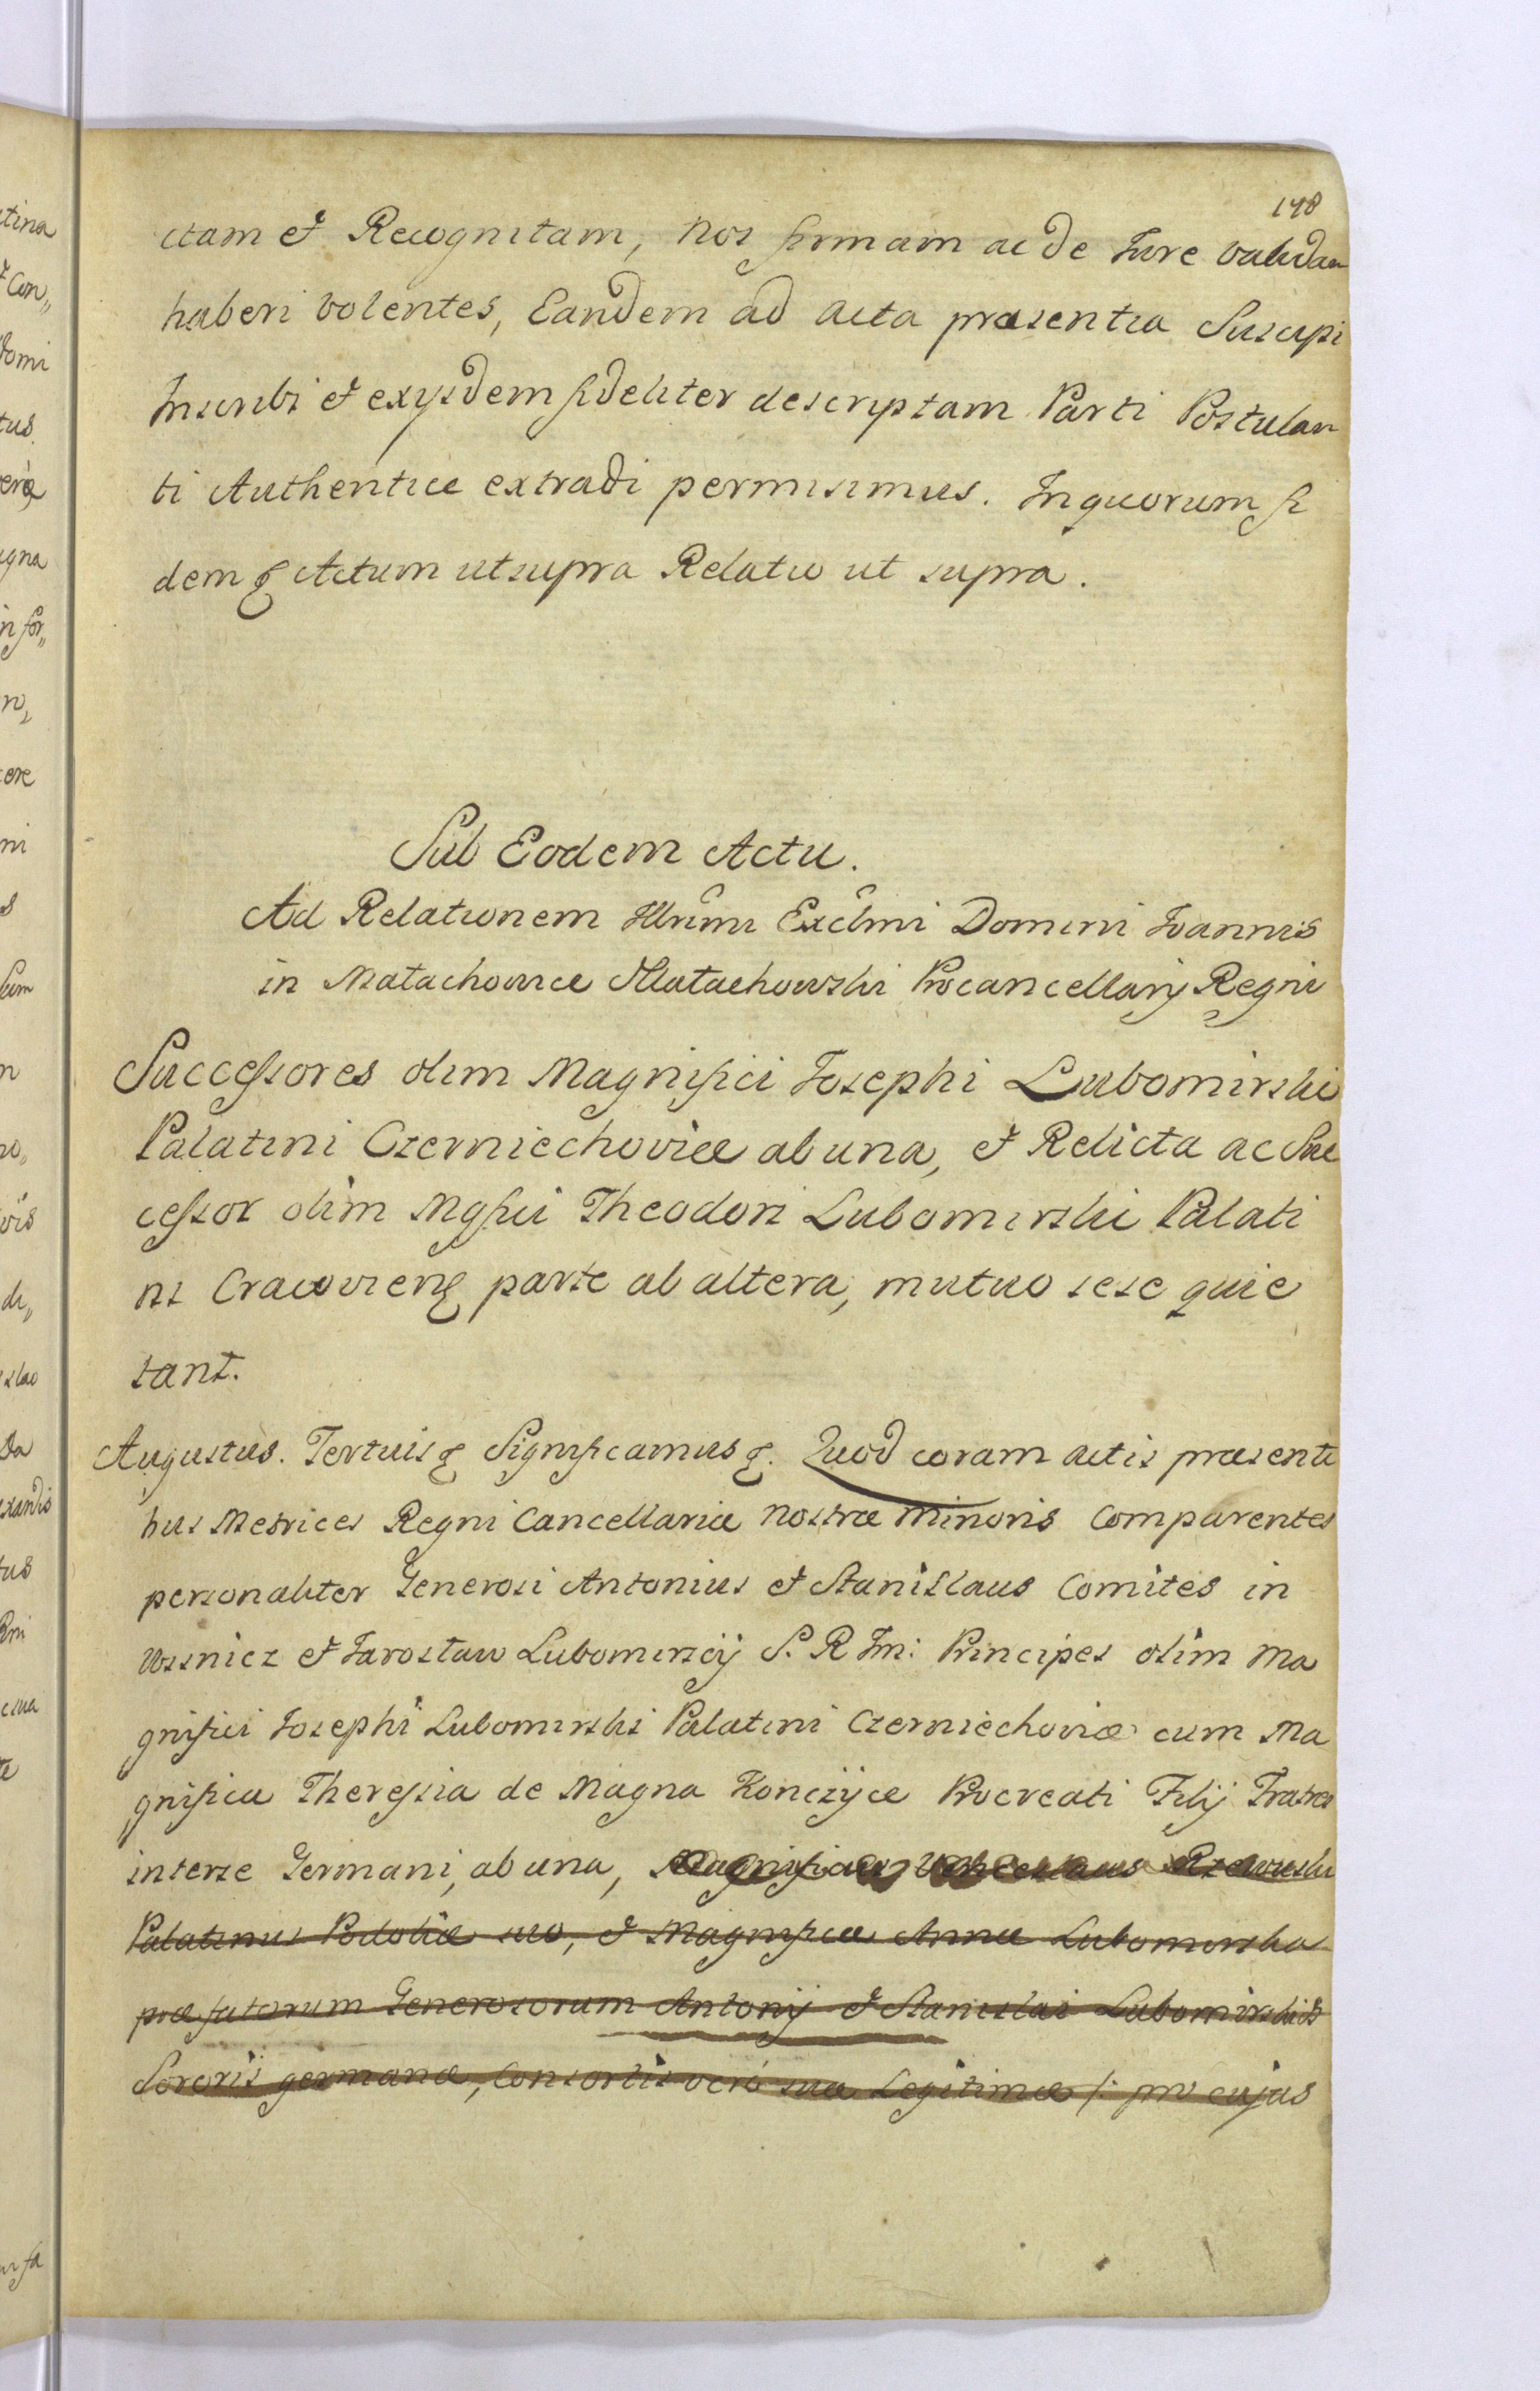 148
ctam et Recognitam, nos firmam ac de Iure validam
haberi volentes, Eandem ad Acta præsentia Suscipi
Inscribi et exijsdem fideliter descriptam Parti Postulan
ti Authenticè extradi permisimus. Inquorum fi
dem &c Actum utsupra Relatio ut supra.
Sub Eodem Actu.
Ad Relationem Illrimi Excelmi Domini Ioannis
in Małachowice Małachowski Procancellarij Regni
Successores olim Magnifici Iosephi Lubomirski
Palatini Czerniechoviæ ab una, et Relicta ac Suc
cessor olim Mgfici Theodori Lubomirski Palati
ni Cracovien &c parte ab altera, mutuo sese quie
tant.
Augustus. Tertuis &c Significamus &c. Quod coram Actis præsenti
bus Metrices Regni Cancellariæ nostræ Minoris Comparentes
personaliter Generosi Antonius et Stanislaus Comites in
Wisnicz et Jarosław Lubomirscij S. R Im: Principes olim Ma
gnifici Iosephi Lubomirski Palatini Czerniechoviæ cum Ma
gnifica Theressia de Magna Konczyce Procreati Filij Fratres
interse Germani, ab una, Magnificus Venceslaus Rzewuski
Palatinus Podoliæ suo, et Magnificæ Annæ Lubomirska
præfatorum Generosorum Antonij et Stanislai Lubomirskich
Sororis germanæ, Consortis verò suæ Legitimæ /: pro cujus